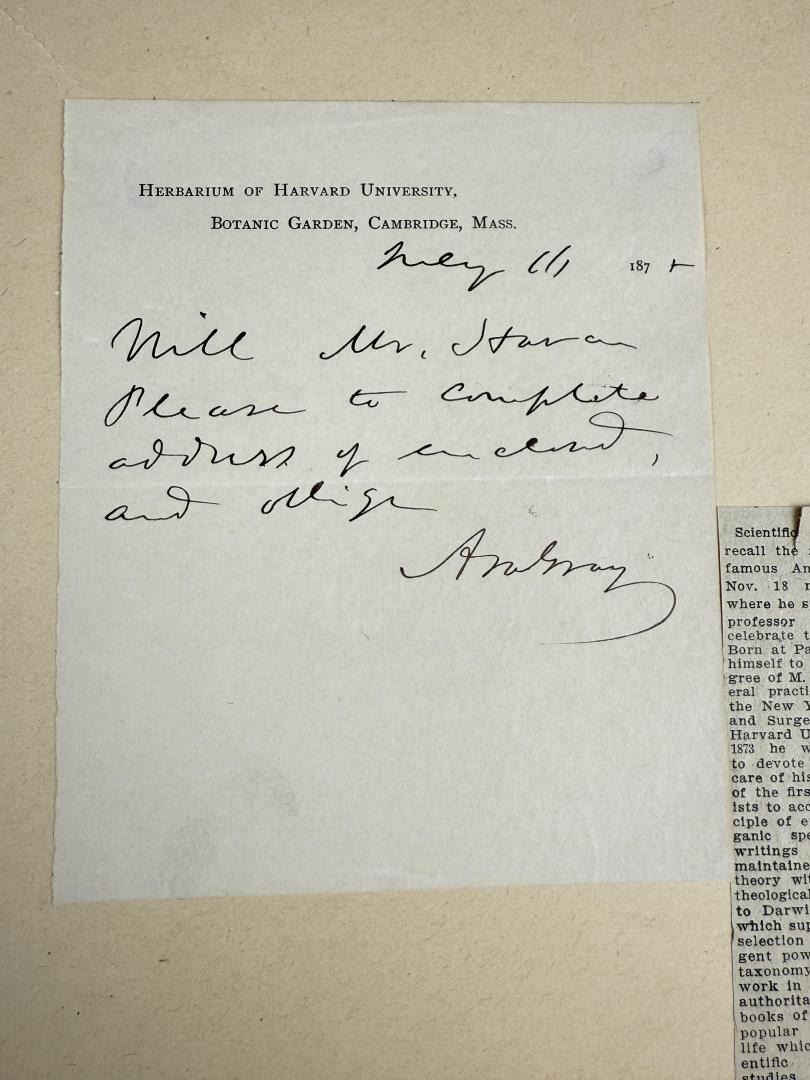 HERBARIUM OF HARVARD UNIVERSITY,
BOTANIC GARDEN, CAMBRIDGE, MASS.
July 11 187
Will Mr. Haven
Please to complete
address of enclosed,
and oblige
Asa Gray
Scientific
recall the
famous Am
Nov. 18
where he s
professor
celebrate t
Born at Pa
himself to
gree of M.
eral practi
the New Y
and Surge
Harvard U
1873 he w
to devote
care of his
of the firs
ists to acc
ciple of e
ganic spe
writings
maintaine
theory wit
theological
to Darwi
which sup
selection
gent pow
taxonomy
work in
authorita
books of
popular
life whic
entific
studies